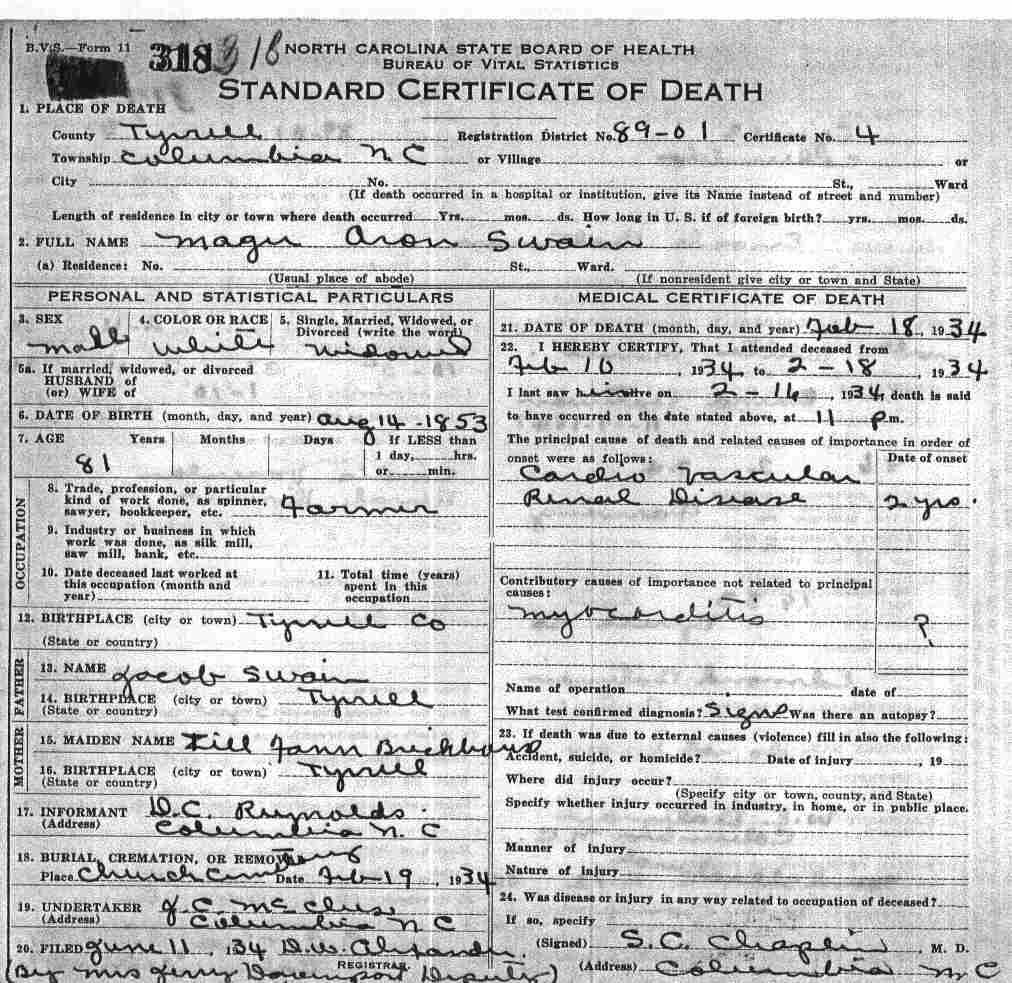 B.V.S.—Form 11
318 318
NORTH CAROLINA STATE BOARD OF HEALTH
BUREAU OF VITAL STATISTICS
STANDARD CERTIFICATE OF DEATH
1. PLACE OF DEATH
County Tyrrell Registration District No. 89-01 Certificate No. 4
Township Columbia N C or Village or
City No. St., Ward
(If death occurred in a hospital or institution, give its Name instead of street and number)
Length of residence in city or town where death occurred Yrs. mos. ds. How long in U. S. if of foreign birth? yrs. mos. ds.
2. FULL NAME Aron Swain
(a) Residence: No. St., Ward.
(Usual place of abode) (If nonresident give city or town and State)
PERSONAL AND STATISTICAL PARTICULARS
3. SEX 4. COLOR OR RACE 5. Single, Married, Widowed, or
Divorced (write the word)
Male White Widowed
5a. If married, widowed, or divorced
HUSBAND of
(or) WIFE of
6. DATE OF BIRTH (month, day, and year) Aug 14 - 1853
7. AGE Years Months Days If LESS than
1 day, hrs.
or min.
81
OCCUPATION
8. Trade, profession, or particular
kind of work done, as spinner,
sawyer, bookkeeper, etc. Farmer
9. Industry or business in which
work was done, as silk mill,
saw mill, bank, etc.
10. Date deceased last worked at
this occupation (month and
year)
11. Total time (years)
spent in this
occupation
12. BIRTHPLACE (city or town) Tyrrell Co
(State or country)
FATHER
13. NAME Jacob Swain
14. BIRTHPLACE (city or town) Tyrrell
(State or country)
MOTHER
15. MAIDEN NAME
16. BIRTHPLACE (city or town) Tyrrell
(State or country)
17. INFORMANT D.C. Reynolds
(Address) Columbia N. C
18. BURIAL, CREMATION, OR REMOVAL
Place Church Cem Date Feb 19, 1934
19. UNDERTAKER J. C.
(Address) Columbia N C
20. FILED June 11, 1934 D. W. Alexander
REGISTRAR.
(By Mrs Jerry Davenport Deputy)
MEDICAL CERTIFICATE OF DEATH
21. DATE OF DEATH (month, day, and year) Feb 18, 1934
22. I HEREBY CERTIFY, That I attended deceased from
Feb 10, 1934 to 2-18, 1934
I last saw him alive on 2-16, 1934, death is said
to have occurred on the date stated above, at 11 P m.
The principal cause of death and related causes of importance in order of
onset were as follows: Date of onset
Cardio Vascular
Renal Disease 2 yrs.
Contributory causes of importance not related to principal
causes:
Myocarditis ?
Name of operation date of
What test confirmed diagnosis? Signs Was there an autopsy?
23. If death was due to external causes (violence) fill in also the following:
Accident, suicide, or homicide? Date of injury , 19
Where did injury occur?
(Specify city or town, county, and State)
Specify whether injury occurred in industry, in home, or in public place.
Manner of injury
Nature of injury
24. Was disease or injury in any way related to occupation of deceased?
If so, specify
(Signed) S.C. Chaplin, M. D.
(Address) Columbia N C